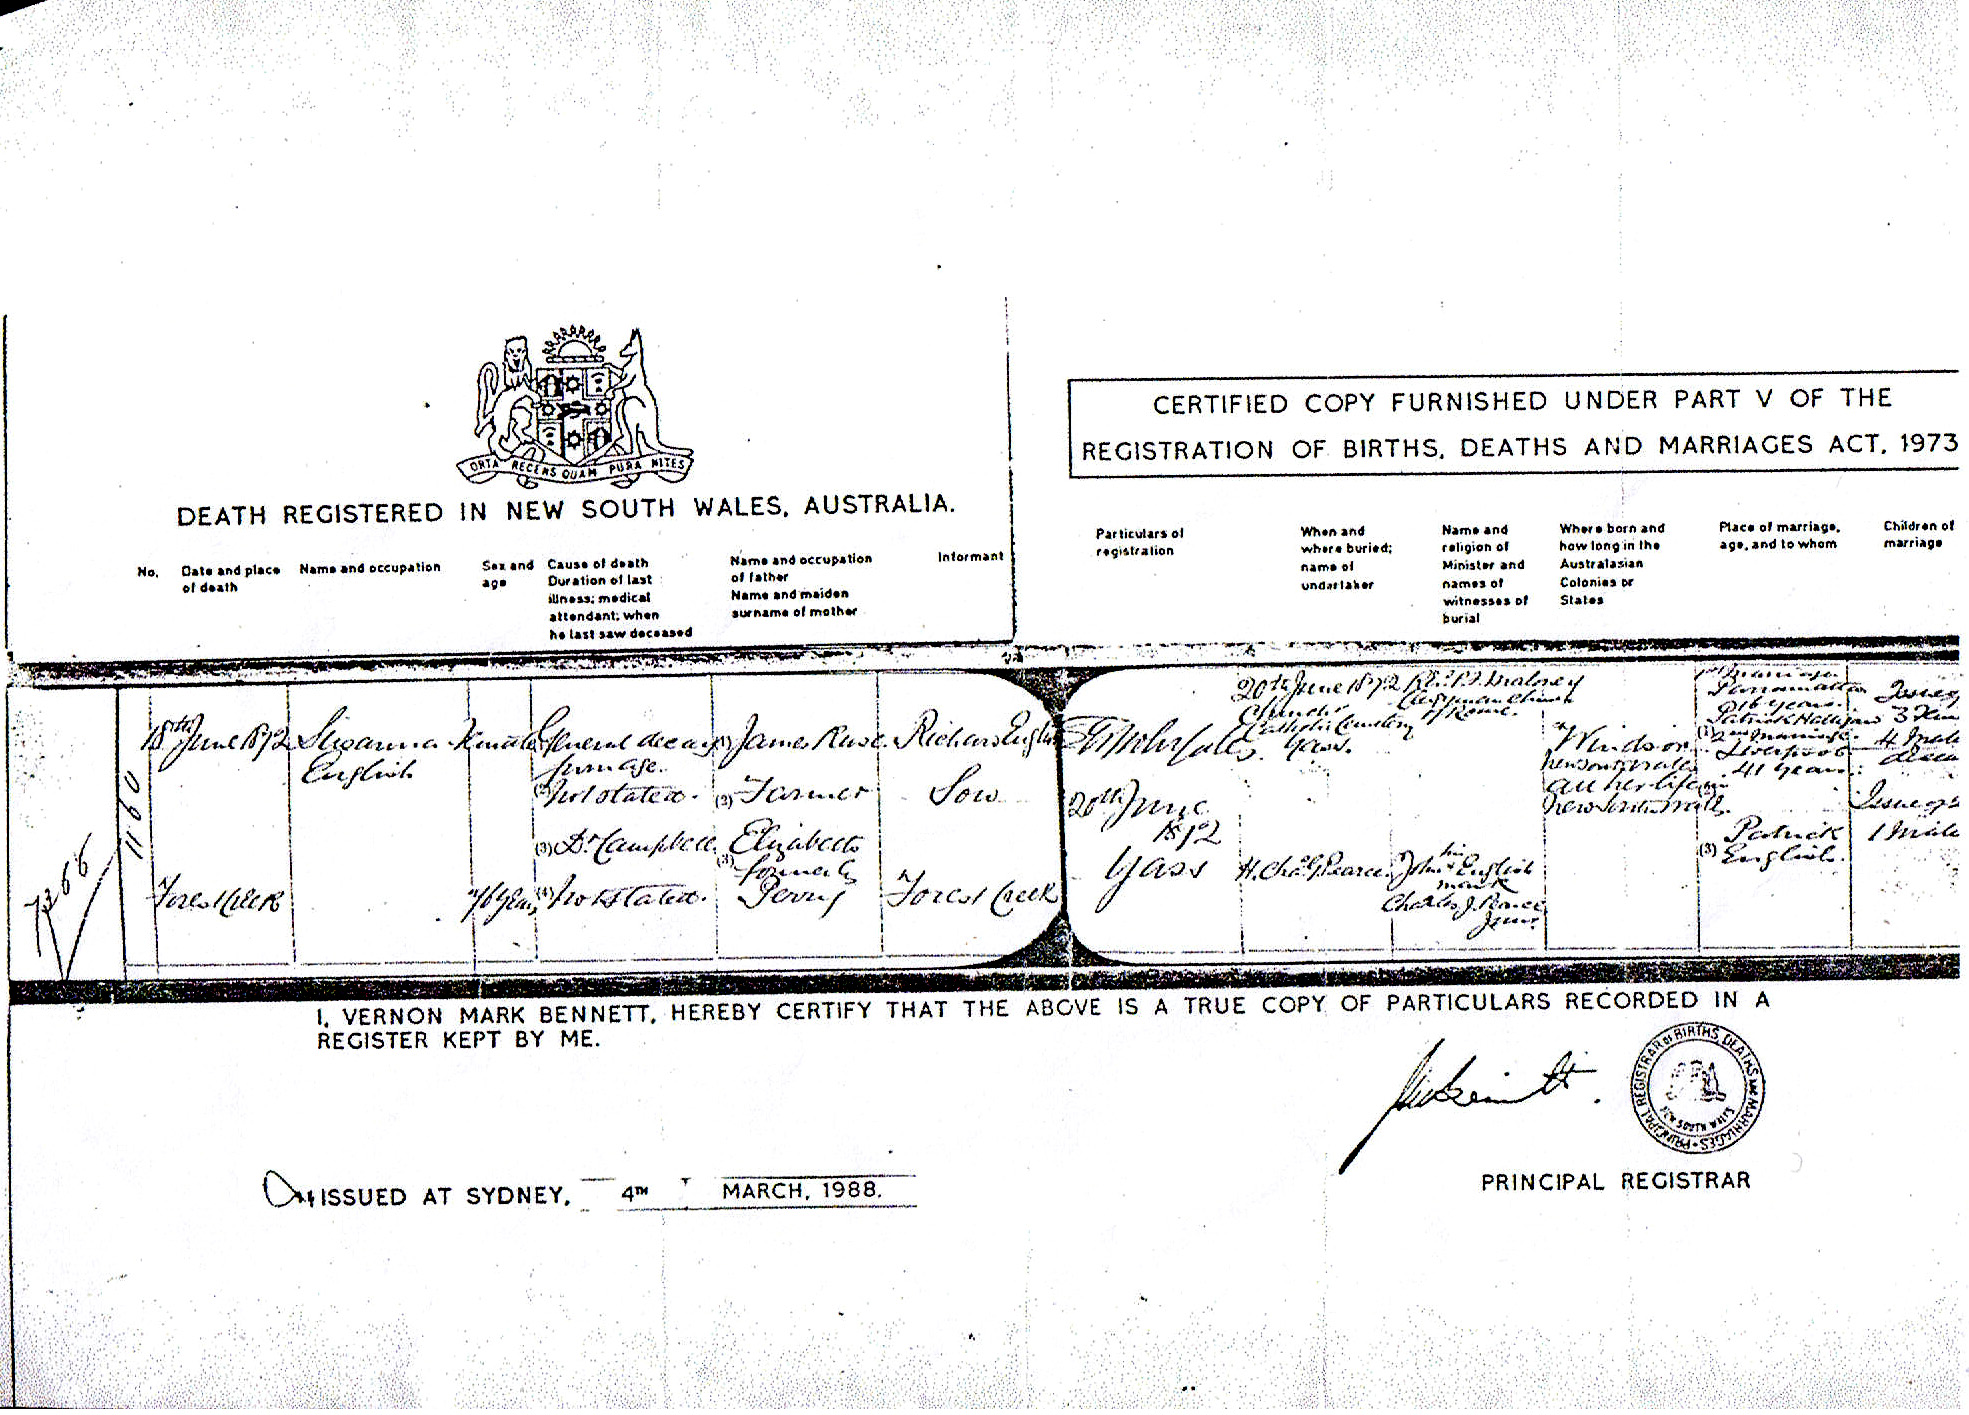 ORTA RECENS QUAM PURA NITES
DEATH REGISTERED IN NEW SOUTH WALES, AUSTRALIA.
CERTIFIED COPY FURNISHED UNDER PART V OF THE
REGISTRATION OF BIRTHS, DEATHS AND MARRIAGES ACT, 1973
No.
Date and place
of death
Name and occupation
Sex and
age
Cause of death
Duration of last
illness; medical
attendant; when
he last saw deceased
Name and occupation
of father
Name and maiden
surname of mother
Informant
Particulars of
registration
When and
where buried;
name of
undertaker
Name and
religion of
Minister and
names of
witnesses of
burial
Where born and
how long in the
Australasian
Colonies or
States
Place of marriage,
age, and to whom
Children of
marriage
7266
1160
18th June 1872
Forest Creek
Susanna
English
Female
76 years
General decay
from age.
(2) Not stated.
(3) Dr Campbell
(4) Not stated.
(1) James Ruse.
(2) Farmer
(3) Elizabeth
formerly
Perry
Richard English
Son
Forest Creek
20th June
1872
Yass
20th June 1872
Catholic Cemetery
Yass.
H. Chas. J. Pearce.
Clergyman Church
of Rome.
John x English
his
mark
Charles J. Pearce
Junr.
Windsor
New South Wales
all her life in
New South Wales.
1st Marriage
Parramatta
16 years.
Patrick Halligan
2nd Marriage.
Liverpool
41 years.
(3) Patrick
English.
3
4
1 Male
I, VERNON MARK BENNETT, HEREBY CERTIFY THAT THE ABOVE IS A TRUE COPY OF PARTICULARS RECORDED IN A
REGISTER KEPT BY ME.
PRINCIPAL REGISTRAR OF BIRTHS, DEATHS AND MARRIAGES
NEW SOUTH WALES
ISSUED AT SYDNEY, 4TH MARCH, 1988.
PRINCIPAL REGISTRAR